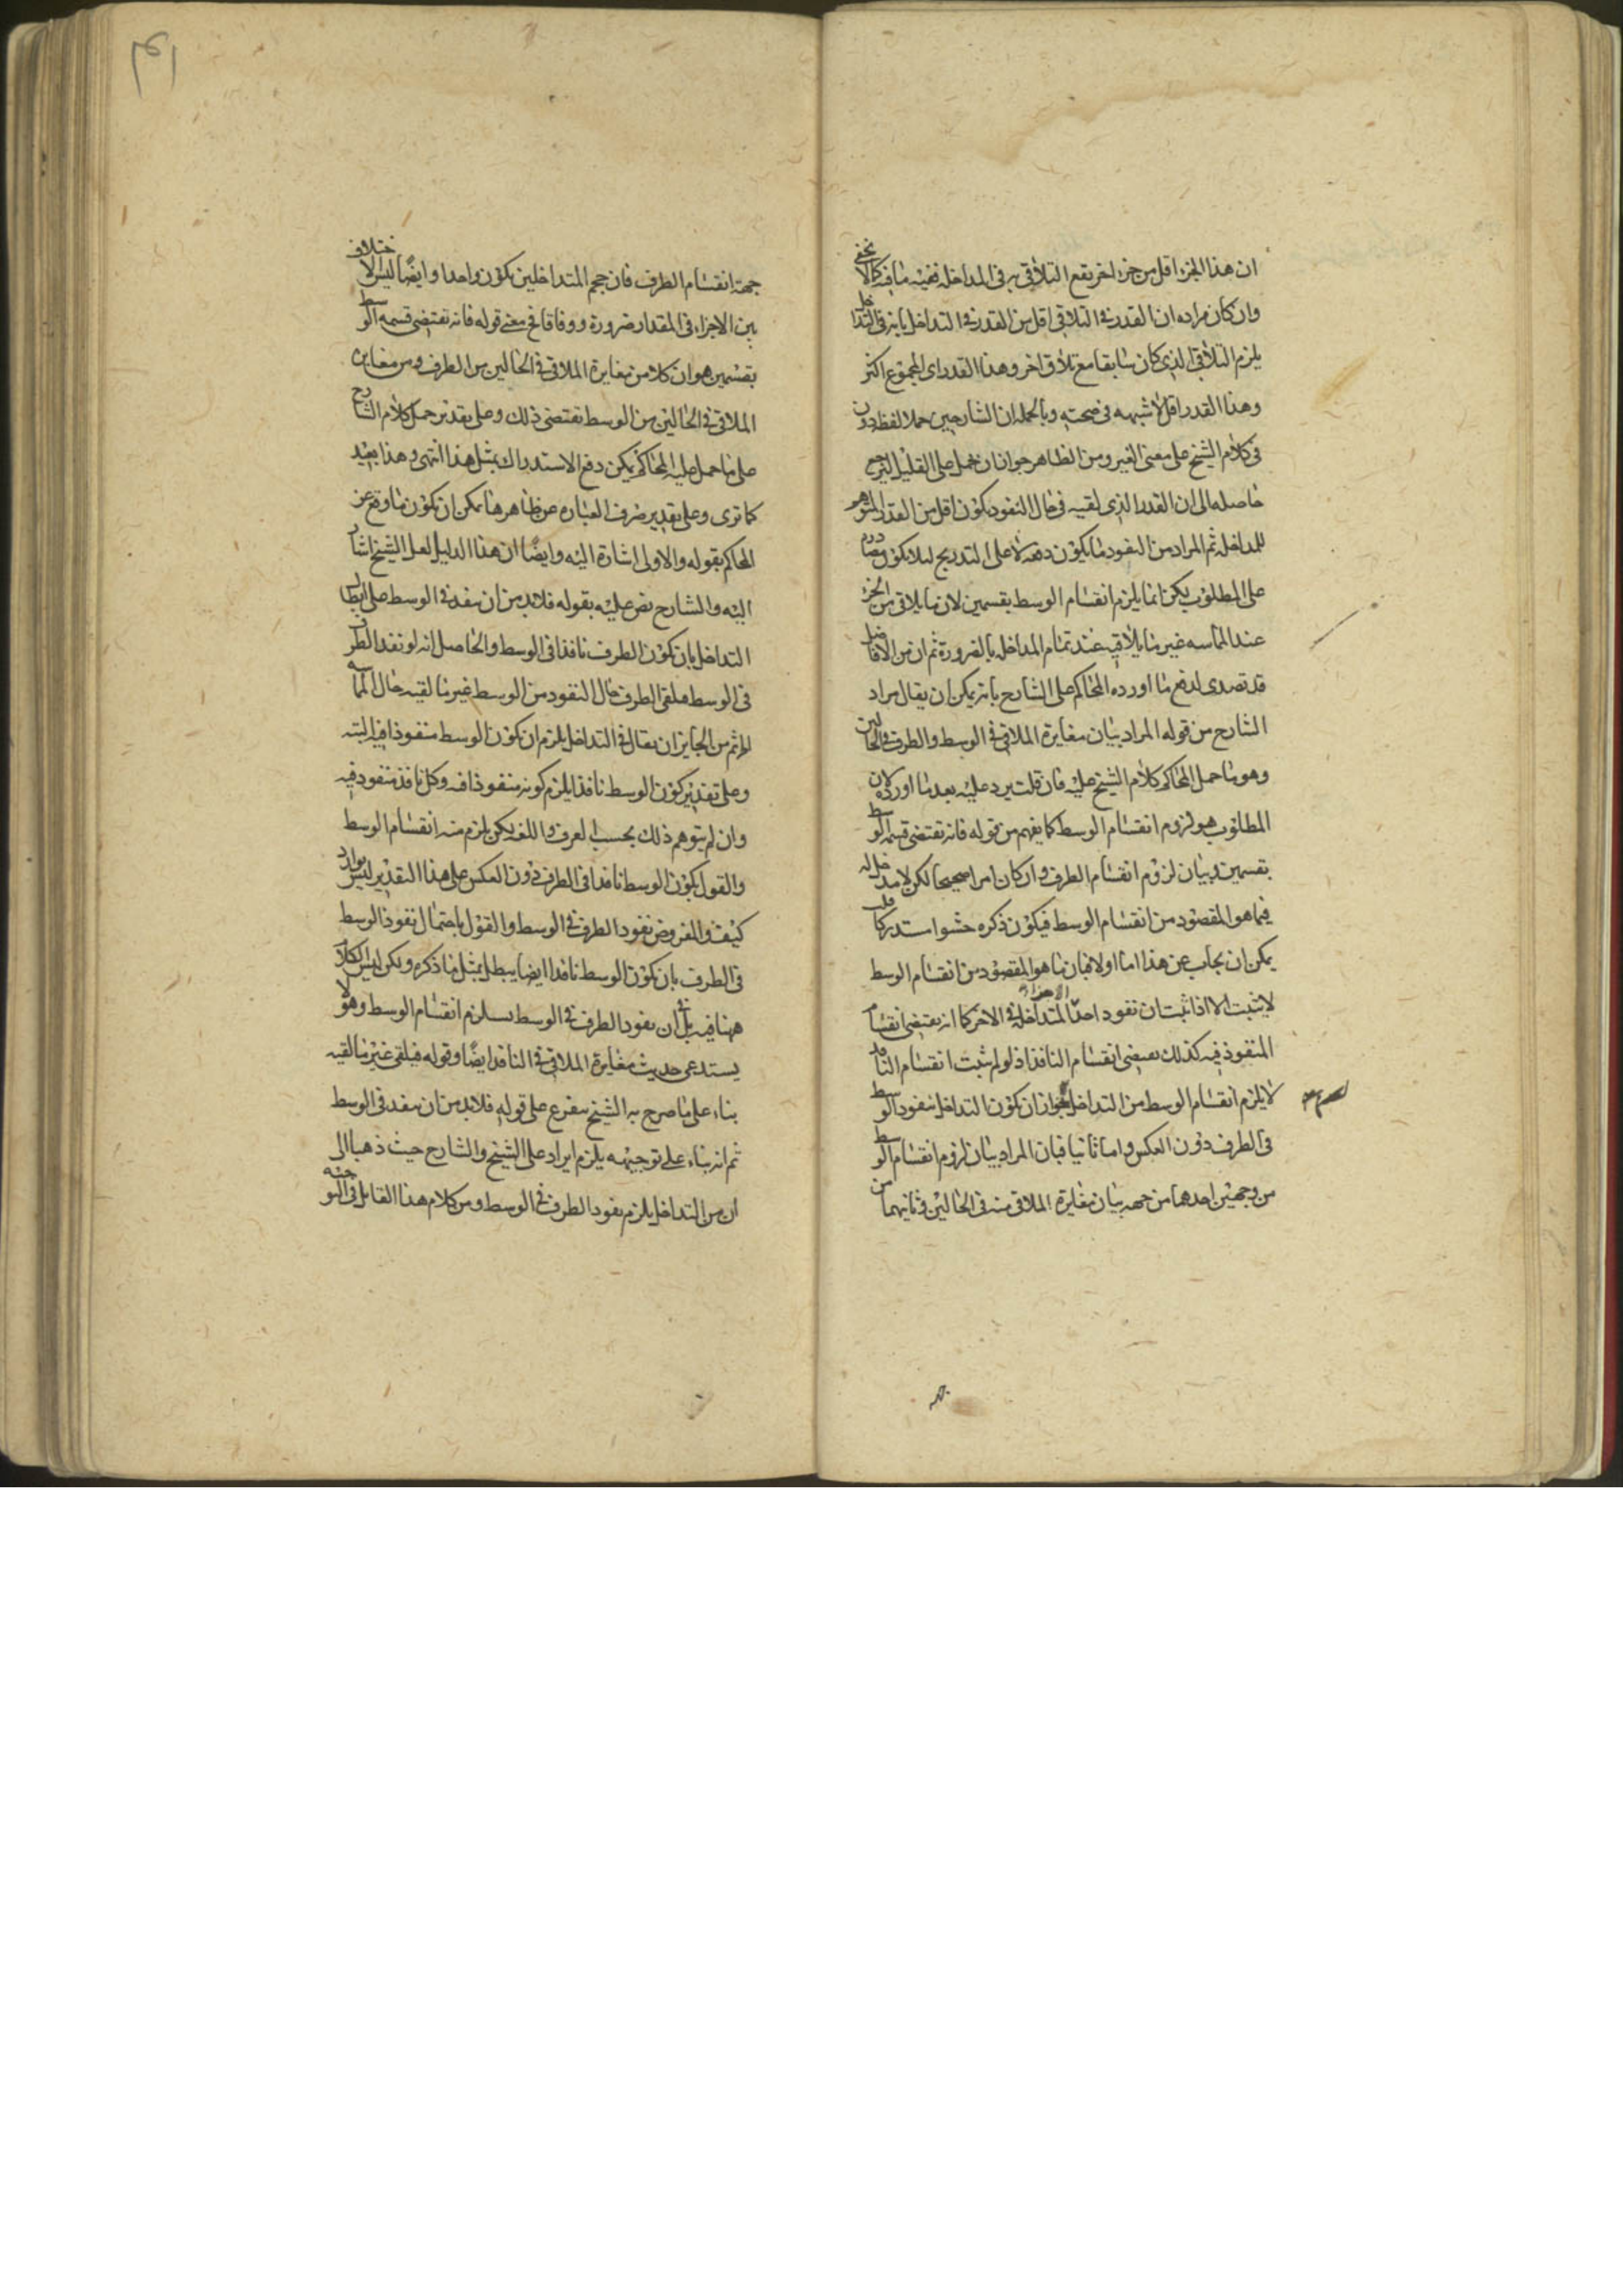 ان هذا الجزء اقل من جزء اخر يقع التلاقى به فى المداخله ففيه ما فيه كما لا يخفى
وان كان مراده ان القدر فى التلاقى اقل من القدر فى التداخل بانه فى التداخل
يلزم التلاقى الذى كان سابقا مع تلاق اخر وهذا القدر اى المجموع اكثر
وهذا القدر اقل لا شبهه فى صحته وبالجمله ان الشارحين حملا لفظه دون
فى كلام الشيخ على معنى الغير ومن الظاهر جواز ان يحمل على القليل ليرجع
حاصله الى ان القدر الذى لقيه فى حال النفود يكون اقل من القدر المتوهم
للمداخله ثم المراد من النفود ما يكون دفعه لا على التدريج ليلا يكون مصادره
على المطلوب لكن انما يلزم انقسام الوسط بقسمين لان ما يلاقى من الجزء
عند المماسه غير ما يلاقيه عند تمام المداخله بالضرورة ثم ان من الافاضل
قد تصدى لدفع ما اورده المحاكم على الشارح بانه يمكن ان يقال مراد
الشارح من قوله المراد بيان مغايرة الملاقى فى الوسط والطرف والحالين
وهو ما حمل المحاكم كلام الشيخ عليه فان قلت يرد عليه بعد ما اورده لان
المطلوب هو لزوم انقسام الوسط كما يفهم من قوله فانه تقتضى قسمه الوسط
بقسمين وبيان لزوم انقسام الطرف وان كان امرا صحيحا لكن لا مدخل له
فيما هو المقصود من انقسام الوسط فيكون ذكره حشوا استدركا قلت
يمكن ان يجاب عن هذا اما اولا فبان ما هو المقصود من انقسام الوسط
لا يثبت الا اذا ثبت ان نفود احد الاجزاء المتداخلة فى الاخر كما انه يقتضى انقسام
المنفوذ فيه كذلك يقتضى انقسام النافذ اذ لو لم يثبت انقسام النافذ
لا يلزم انقسام الوسط من التداخل لجواز ان يكون التداخل بنفود الوسط
فى الطرف دون العكس واما ثانيا فبان المراد بيان لزوم انقسام الوسط
من وجهين احدهما من جهه بيان مغايرة الملاقى منه فى الحالين وثانيهما من
جهة انقسام الطرف فان حجم المتداخلين يكون واحدا وايضا ليس لا ختلاف
بين الاجزاء فى المقدار ضرورة ووفاقا فح معنى قوله فانه تقتضى قسمه الوسط
بقسمين هو ان كلا من مغايرة الملاقى فى الحالين من الطرف ومن مغايرة
الملاقى فى الحالين من الوسط تقتضى ذلك وعلى تقدير حمل كلام الشارح
على ما حمل عليه المحاكم يمكن دفع الاستدراك بمثل هذا انتهى وهذا بعيد
كما ترى وعلى تقدير صرف العبارة عن ظاهرها يمكن ان يكون ما وقع عن
المحاكم بقوله والاولى اشارة اليه وايضا ان هذا الدليل لعل الشيخ اشار
اليه والشارح نص عليه بقوله فلابد من ان ينفد فى الوسط على ابطال
التداخل بان يكون الطرف نافذا فى الوسط والحاصل انه لو نفد الطرف
فى الوسط فلقى الطرف حال النفود من الوسط غير ما لقيه حال المماسه
ثم من الجايز ان يقال فى التداخل يلزم ان يكون الوسط منفوذا فيه البته
وعلى تقدير كون الوسط نافذا يلزم كونه منفوذا فيه وكل نافذ منفود فيه
وان لم يتوهم ذلك بحسب العرف واللغه لكن يلزم منه انقسام الوسط
والقول بكون الوسط نافدا فى الطرف دون العكس على هذا التقدير ليس بوارد
كيف والمفروض نفود الطرف فى الوسط والقول باحتمال نفود الوسط
فى الطرف بان يكون الوسط نافدا ايضا يبطل بمثل ما ذكره ولكن ليس الكلام
ههنا فيه بل فى ان نفود الطرف فى الوسط يستلزم انقسام الوسط وهو لا
يستدعى حديث مغايرة الملاقى فى النافد ايضا وقوله فيلقى غير ما لقيه
بناء على ما صرح به الشيخ متفرع على قوله فلابد من ان ينفد فى الوسط
ثم انه بناء على توجيهه يلزم ايراد على الشيخ والشارح حيث ذهبا الى
ان من التداخل يلزم نفود الطرف فى الوسط ومن كلام هذا القايل فى التوجيه